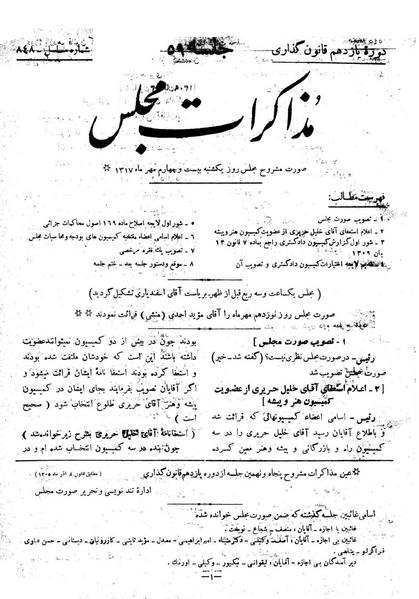 دورهٔ یازدهم قانون گذاری
جلسه ۵۹
شماره مسلسل ـ ۸۴۸
مذاکرات مجلس
صورت مشروح مجلس روز یکشنبه بیست و چهارم مهر ماه ۱۳۱۷
فهرست مطالب:
۱ ـ تصویب صورت مجلس
۲ ـ اعلام استعفای آقای خلیل حریری از عضویت کمیسیون هنر و پیشه
۳ ـ شور اول گزارش کمیسیون دادگستری راجع بماده ۷ قانون ۱۳
بان ۱۳۰۹
۴ ـ تقدیم لایحه اختیارات کمیسیون دادگستری و تصویب آن
۵ ـ شور اول لایحه اصلاح ماده ۱۶۹ اصول محاکمات جزائی
۶ ـ اعلام اسامی اعضاء منتخبه کمیسیون های بودجه و محاسبات مجلس
۷ ـ تصویب یک فقره مرخصی
۸ ـ موقع و دستور جلسه بعد ـ ختم جلسه
(مجلس یکساعت و سه ربع قبل از ظهر بریاست آقای اسفندیاری تشکیل گردید)
صورت مجلس روز نوزدهم مهرماه را آقای مؤید احمدی (منشی) قرائت نمودند
۱ ـ تصویب صورت مجلس
رئیس ـ در صورت مجلس نظری نیست؟ (گفته شد ـ خیر)
صورت مجلس تصویب شد
۲ ـ اعلام استعفای آقای خلیل حریری از عضویت
کمیسیون هنر و پیشه
رئیس ـ اسامی اعضاء کمیسیونهائی که قرائت شد
و باطلاع آقایان رسید آقای خلیل حریری را در سه
کمیسیون راه و بازرگانی و پیشه وهنر معین کرده
بودند چون در بیش از دو کمیسیون نمیتوانند عضویت
داشته باشند این است که خودشان ملتفت شده بودند
و استعفا کرده بودند استعفا نامهٔ ایشان قرائت میشود و
اگر آقایان تصویب بفرمایند بجای ایشان در کمیسیون
پیشه وهنر آقای حریری طلوع انتخاب شود (صحیح
است)
(استعفانامهٔ آقای خلیل حریری بشرح زیر خوانده شد)
چون بنده در سه کمیسیون انتخاب شده ام و در
عین مذاکرات مشروح پنجاه و نهمین جلسه از دوره یازدهم قانون گذاری
(مطابق قانون ۸ آذر ماه ۱۳۰۵)
اداره تند نویسی و تحریر صورت مجلس
اسامی غائبین جلسه گذشته که ضمن صورت مجلس خوانده شده
غائبین با اجازه ـ آقایان: منصف ـ شجاع ـ نوبخت.
غائبین بی اجازه ـ آقایان: آصف ـ وکیلی ـ دکتر سنگ ـ تهرانچی ـ امیر ابراهیمی ـ معدل ـ مؤید ثابتی ـ کازرونیان ـ دبستانی ـ حسن علوی
قراگزلو ـ پناهی.
دیر آمدگان بی اجازه ـ آقایان: لیقوانی ـ نیکپور ـ وکیلی ـ اورنگ.
ـ ۱ ـ